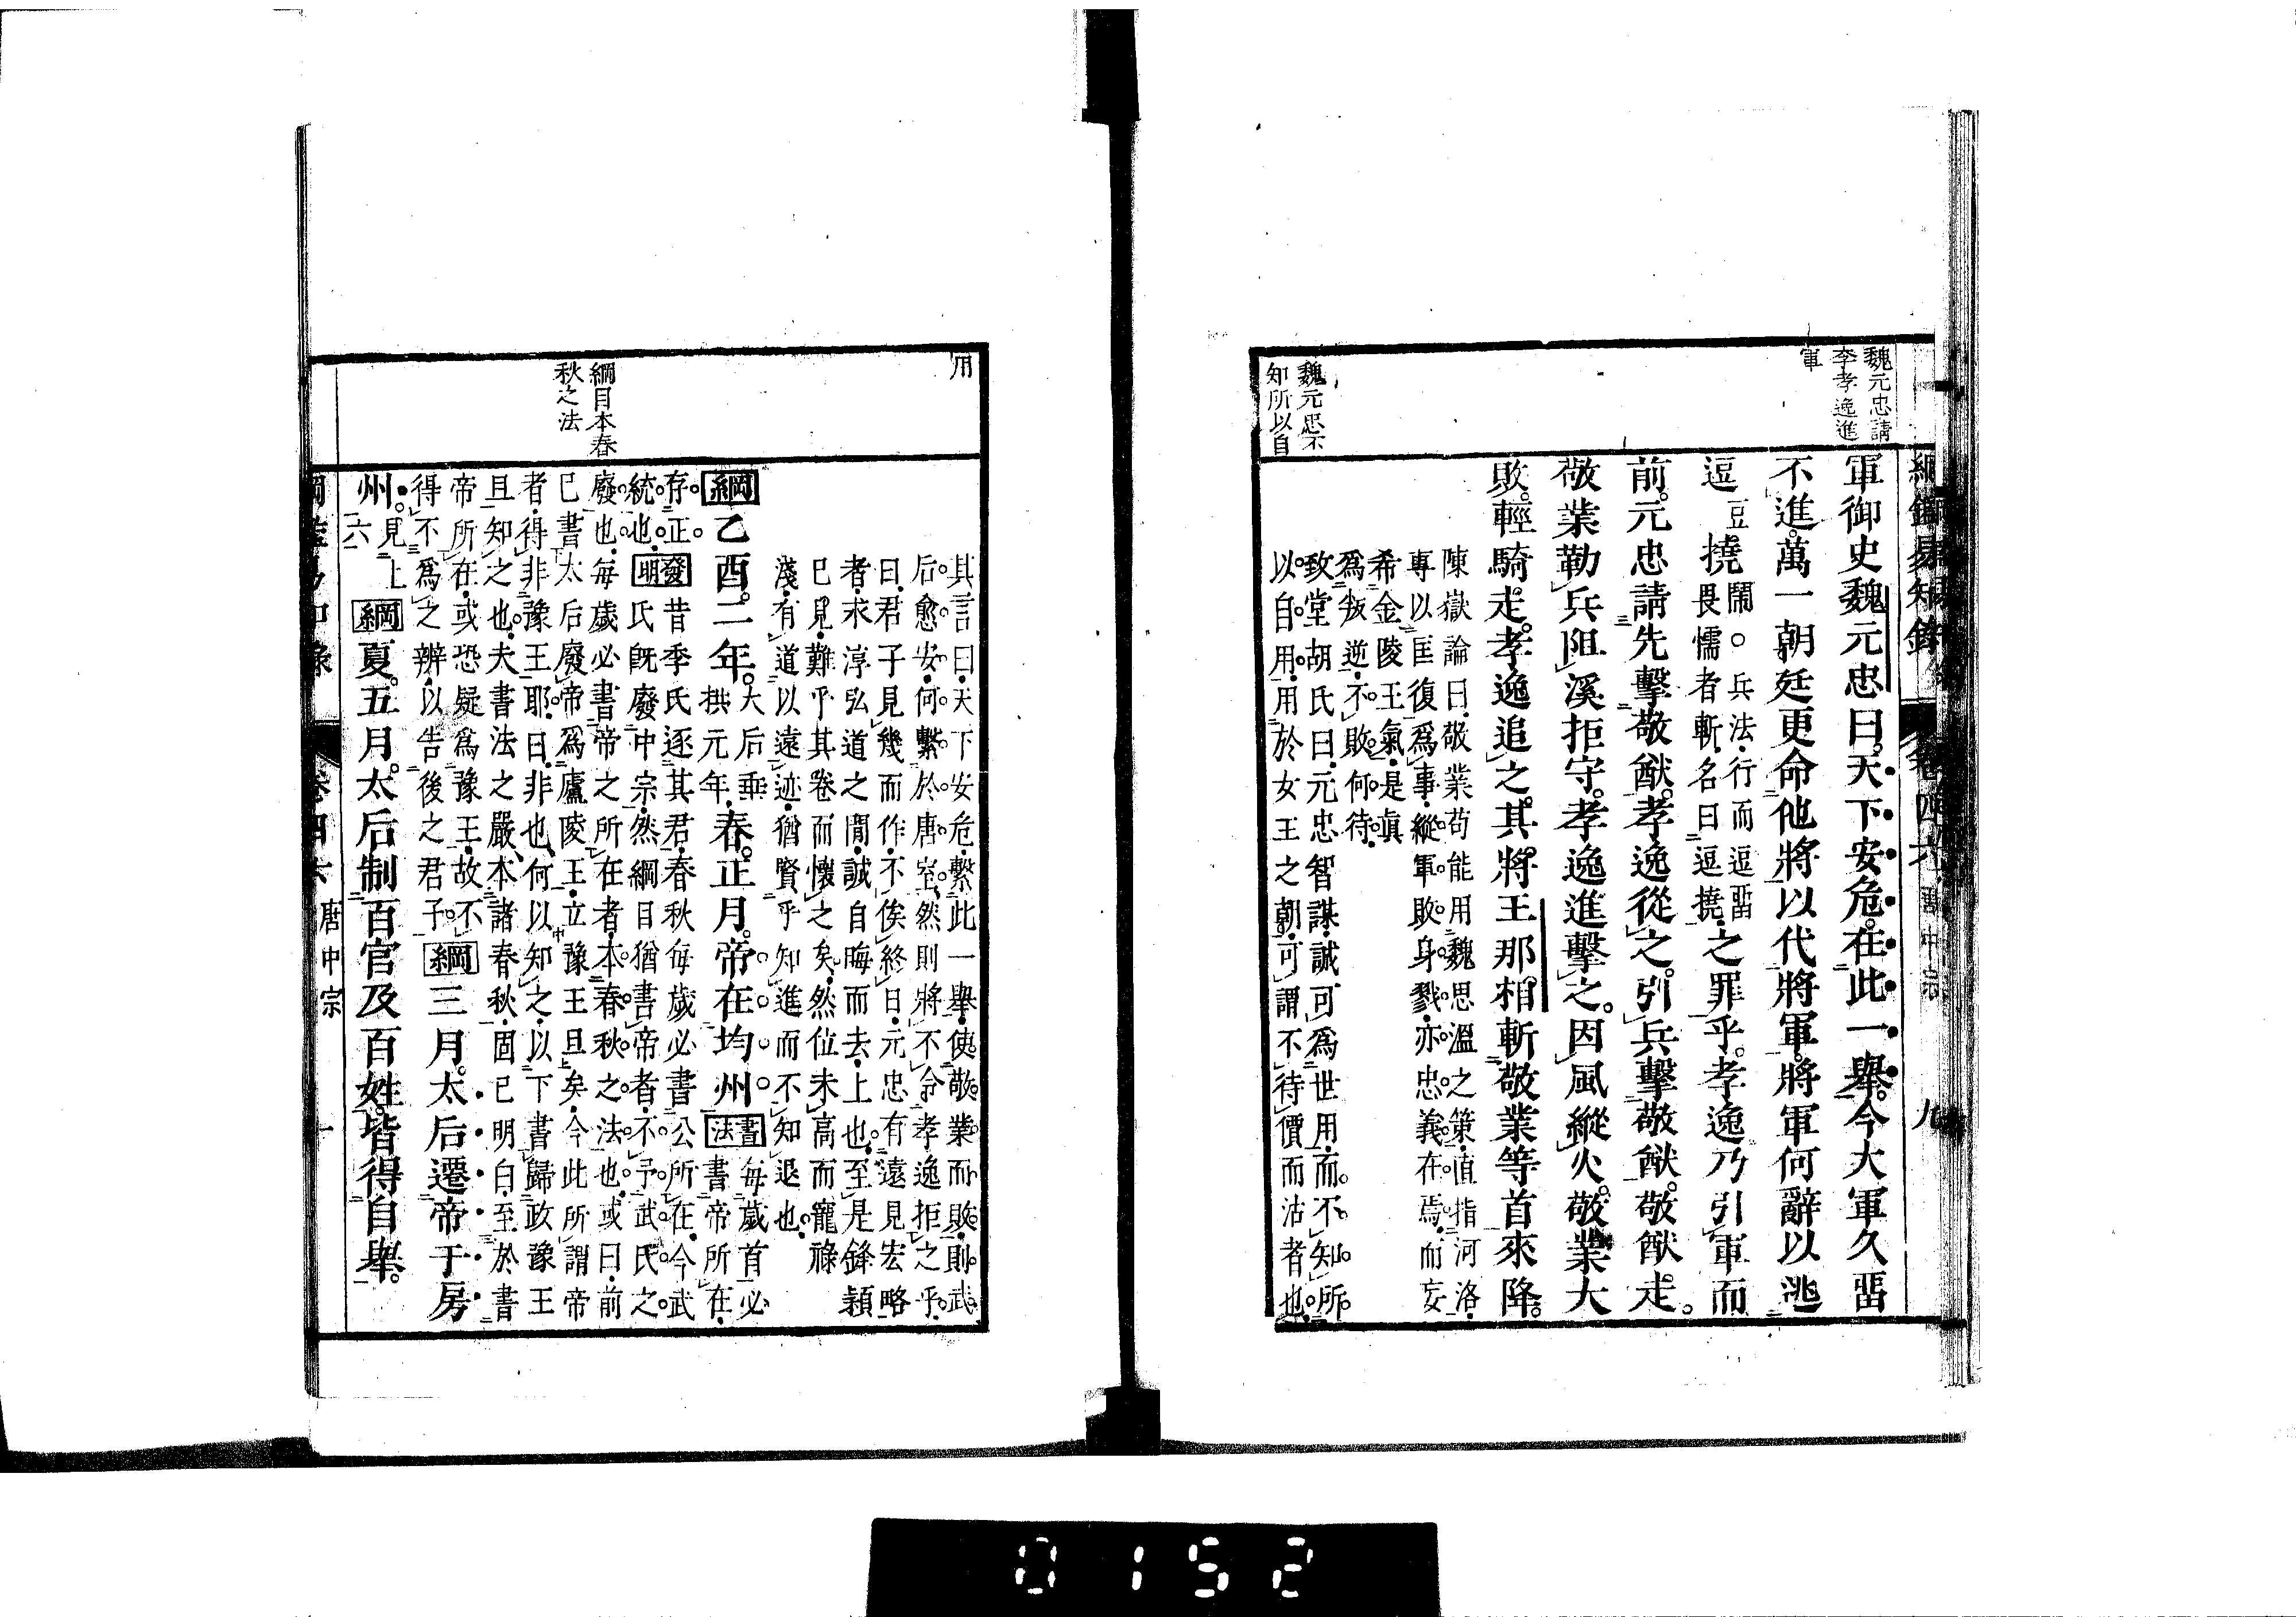 綱鑑易知錄
卷四六
唐中宗
九
魏元忠請
李孝逸進
軍
魏元忠不
知所以自
軍御史魏元忠曰。天下安危。在此一舉。今大軍久畱
不進。萬一朝廷更命他將以代將軍。將軍何辭以逃
逗豆。撓鬧。○兵法。行而逗畱畏懦者斬。名曰逗撓。之罪乎。孝逸乃引軍而
前。元忠請先擊敬猷。孝逸從之。引兵擊敬猷。敬猷走。
敬業勒兵阻溪拒守。孝逸進擊之。因風縱火。敬業大
敗。輕騎走。孝逸追之。其將王那相斬敬業等首來降。
陳嶽論曰。敬業苟能用魏思溫之策。直指河洛。
專以匡復爲事。縱軍敗身戮。亦忠義在焉。而妄
希金陵王氣。是眞
爲叛逆。不敗何待。
致堂胡氏曰。元忠智謀。誠可爲世用。而不知所
以自用。用於女王之朝。可謂不待價而沽者也。
用
綱目本春
秋之法
其言曰。天下安危。繫此一舉。使敬業而敗。則武
后愈安。何繫於唐室。然則將不令孝逸拒之乎。
曰。君子見幾而作。不俟終日。元忠有遠見宏略
者。求淳弘道之閒。誠自晦而去。上也。至是鋒穎
已見。難乎其卷而懷之矣。然位未高而寵祿
淺。有道以遠迹。猶賢乎知進而不知退也。
綱乙酉。二年。太后垂拱元年。春。正月。帝在均州書法每歲首必書帝所在。
存正統也。發明昔季氏逐其君。春秋每歲必書公所在。今武
氏旣廢中宗。然綱目猶書帝者。不予武氏之
廢也。每歲必書帝之所在者。本春秋之法也。或曰。前
已書太后廢帝爲廬陵王。立豫王旦矣。今此所謂帝
者。得非豫王耶。曰。非也。何以知之。以下書歸政豫王
且知之也。夫書法之嚴。本諸春秋。固已明白。至於書
帝所在。或恐疑爲豫王。故不
得不爲之辨。以告後之君子。綱三月。太后遷帝于房
州。見上六綱夏。五月。太后制百官及百姓。皆得自舉。
綱鑑易知錄
卷四六
唐中宗
十
0152